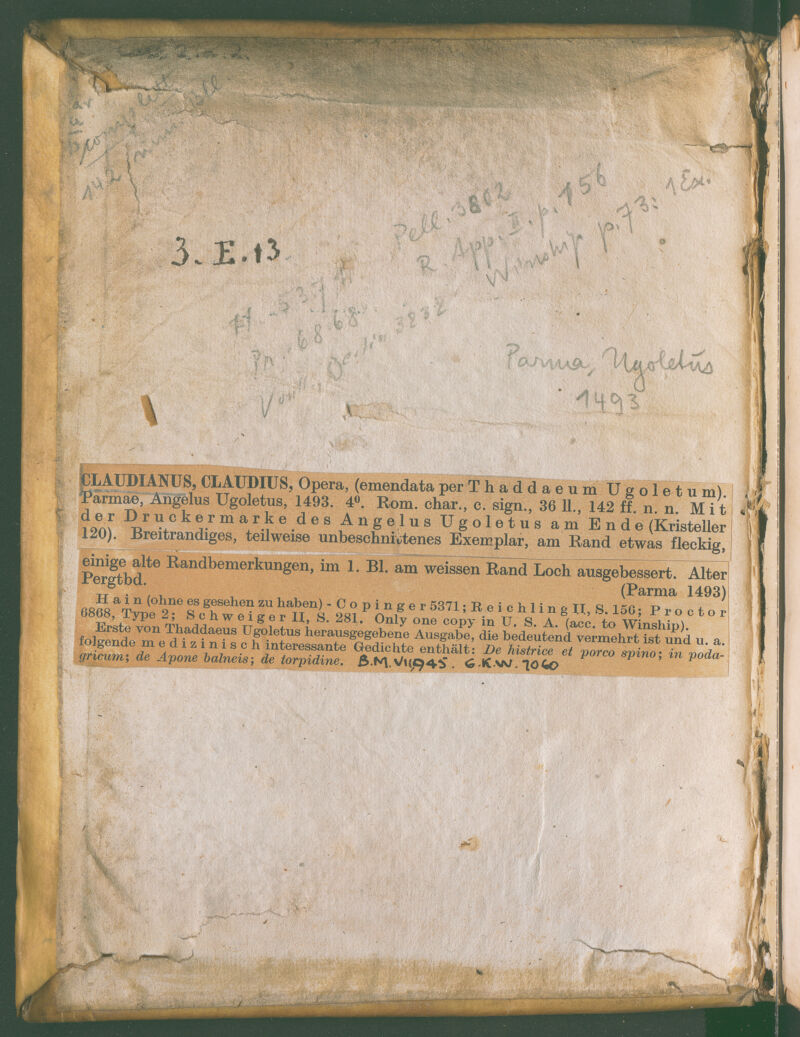 complet
142 num. bll.
3. E. 13
Pell. 3802
R. App. II. p. 156
Winship p. 73: 1 Ex.
H. 5371
Pr. 6868.
Berlin 3832
Parma, Ugoletus
1493
CLAUDIANUS, CLAUDIUS, Opera, (emendata per Thaddaeum Ugoletum).
Parmae, Angelus Ugoletus, 1493. 4⁰. Rom. char., c. sign., 36 ll., 142 ff. n. n. Mit
der Druckermarke des Angelus Ugoletus am Ende (Kristeller
120). Breitrandiges, teilweise unbeschnittenes Exemplar, am Rand etwas fleckig,
einige alte Randbemerkungen, im 1. Bl. am weissen Rand Loch ausgebessert. Alter
Pergtbd. (Parma 1493)
Hain (ohne es gesehen zu haben) - Copinger 5371; Reichling II, S. 156; Proctor
6868, Type 2; Schweiger II, S. 281. Only one copy in U. S. A. (acc. to Winship).
Erste von Thaddaeus Ugoletus herausgegebene Ausgabe, die bedeutend vermehrt ist und u. a.
folgende medizinisch interessante Gedichte enthält: De histrice et porco spino; in poda-
gricum; de Apone balneis; de torpidine. B.M. VII, 945. G.K.W. 7060